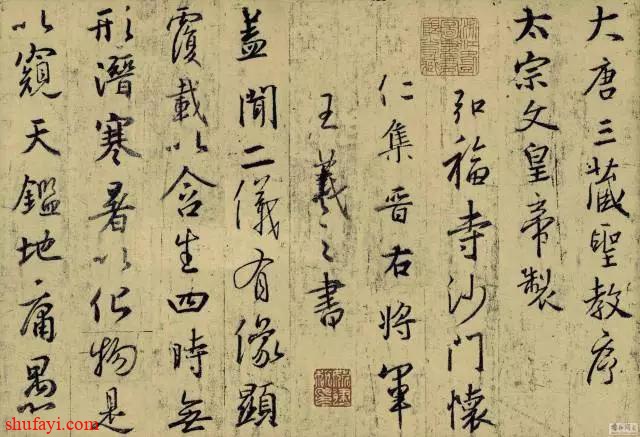 大唐三藏聖教序
太宗文皇帝製
弘福寺沙門懷
仁集晉右將軍
王羲之書
蓋聞二儀有像顯
覆載以含生四時無
形潛寒暑以化物是
以窺天鑑地庸愚
shufayi.com